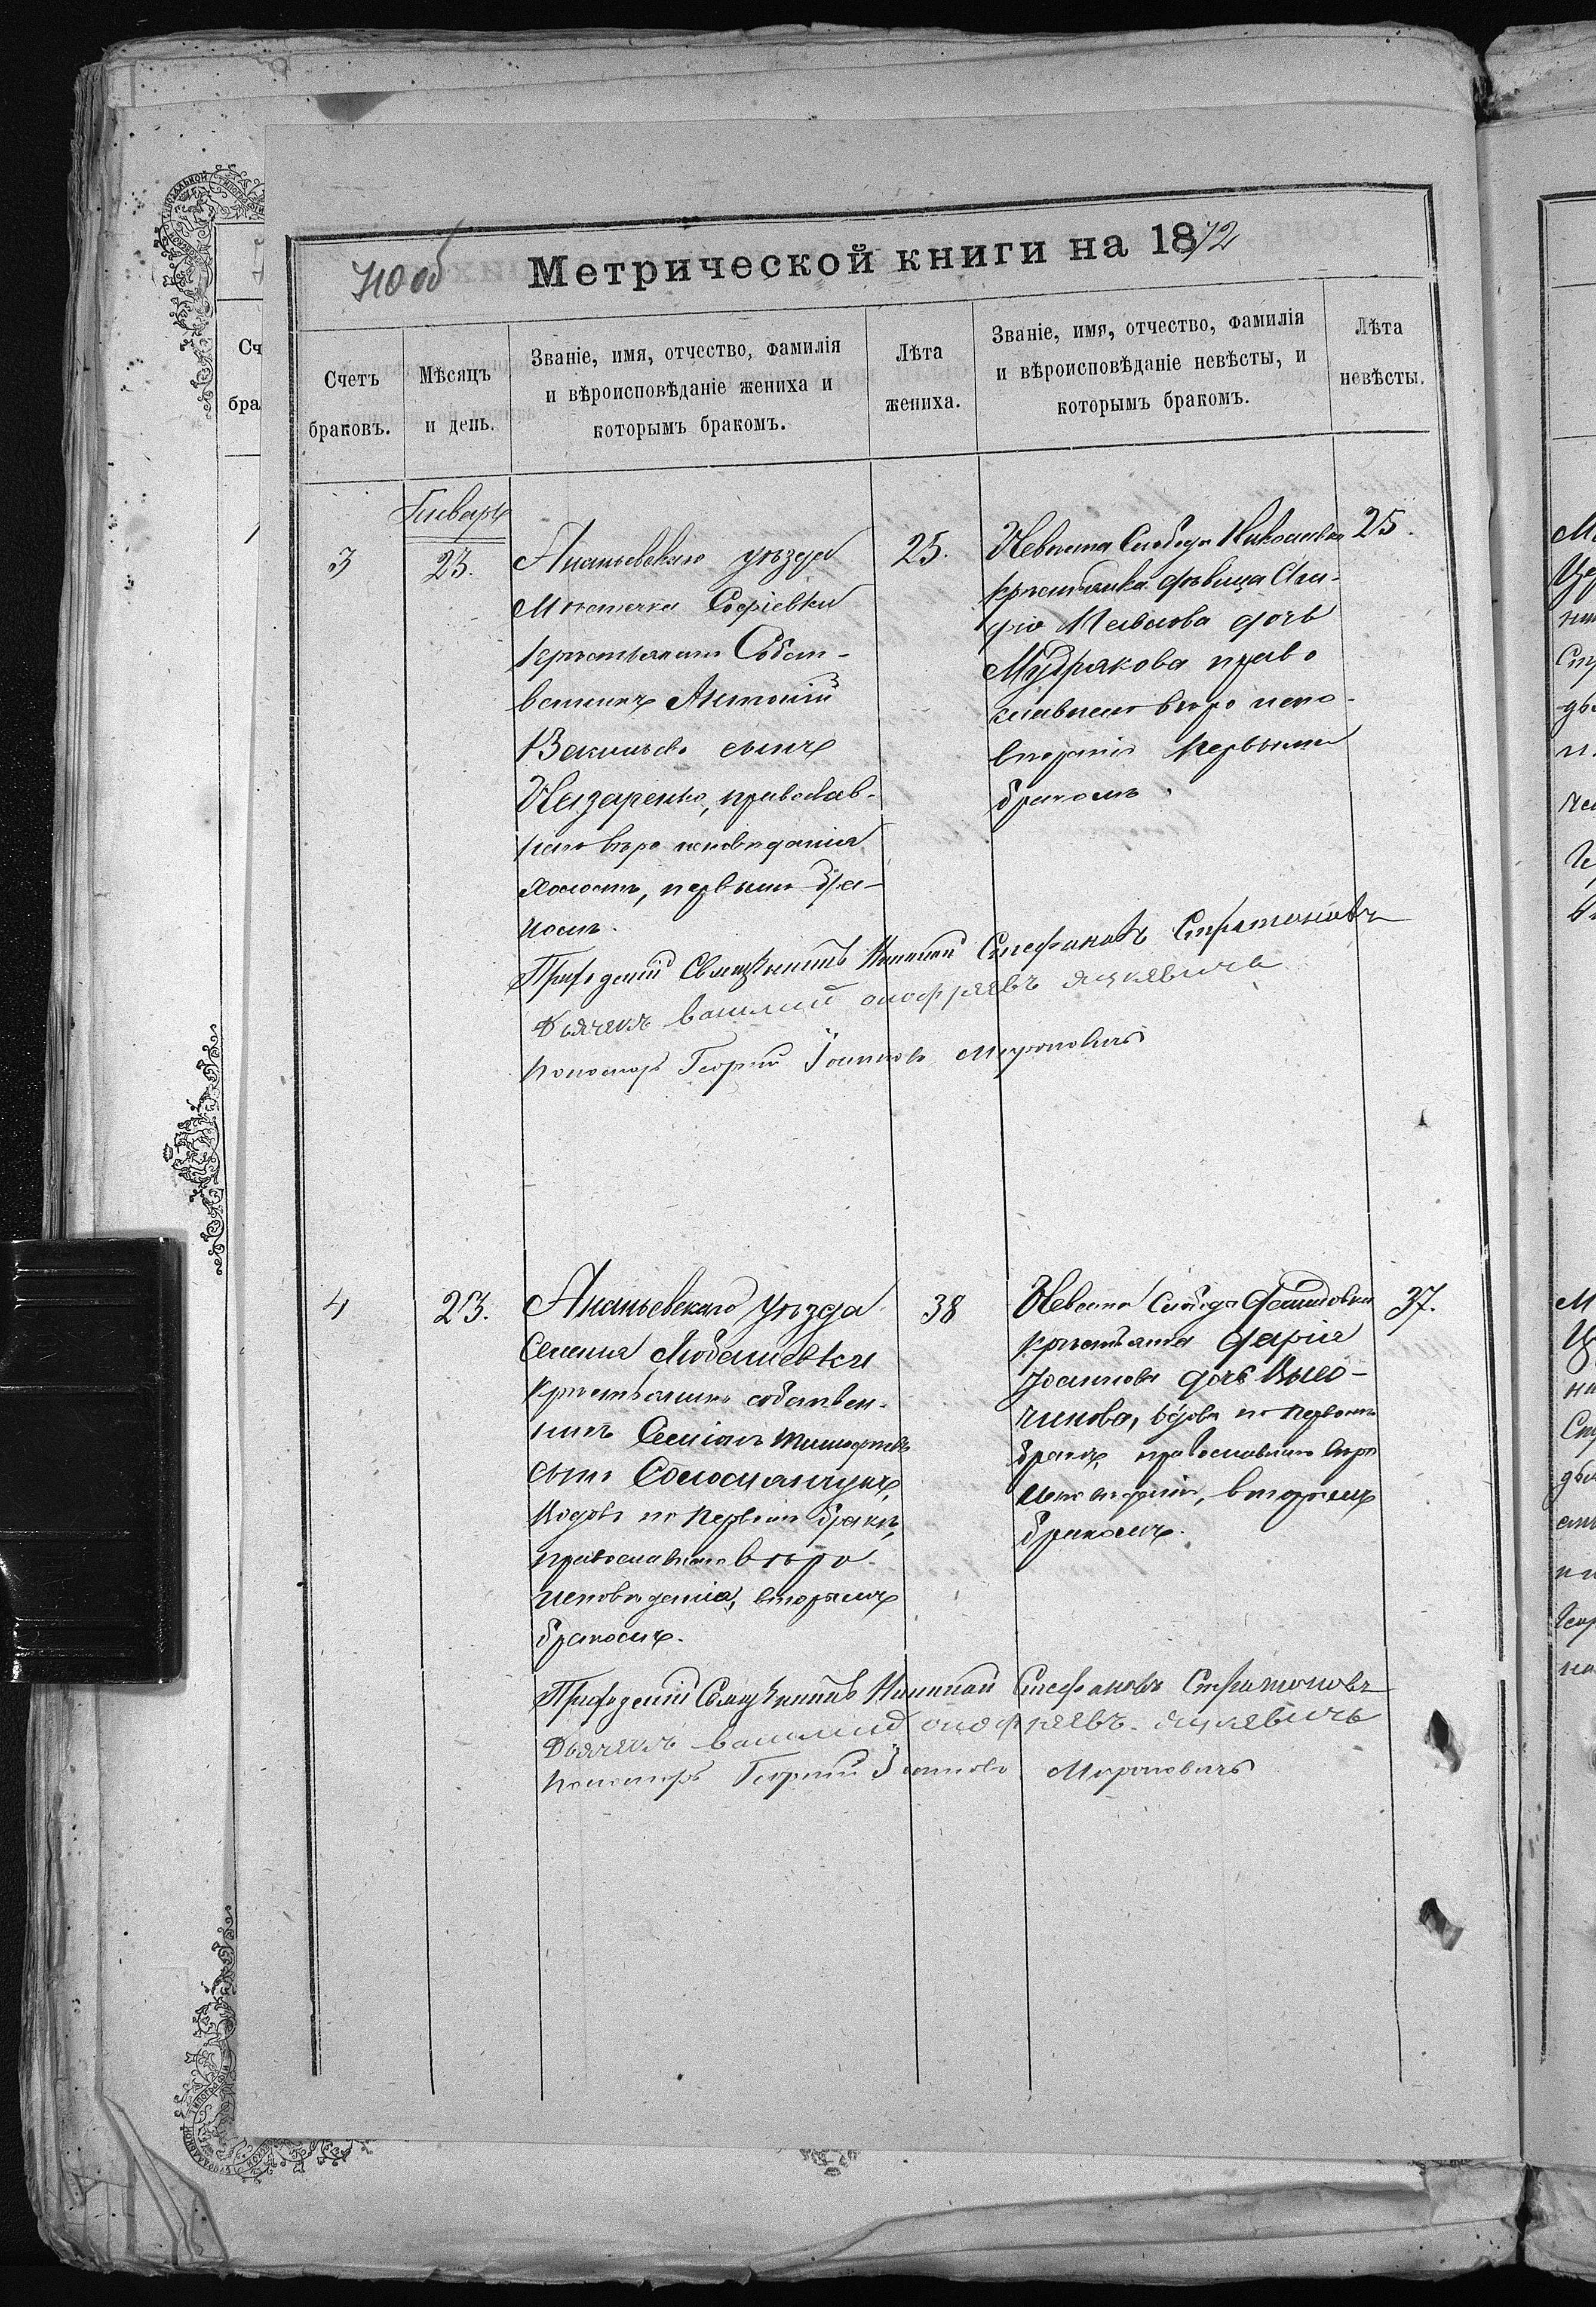 Метрической книги на 1872
Счетъ браковъ.
Мѣсяцъ и день.
Званіе, имя, отчество, фамилія
и вѣроисповѣданіе жениха и
которымъ бракомъ.
Лѣта жениха.
Званіе, имя, отчество, фамилія
и вѣроисповѣданіе невѣсты, и
которымъ бракомъ.
Лѣта невѣсты.
Январь
3
23.
Ананьевскаго уѣзда
Мѣстечка Софіевки
крестьянинъ Собст-
венникъ Антоній
Васильевъ сынъ
Назаренко, православ-
наго вѣро исповѣданія
холостъ, первымъ бра-
комъ.
25.
Невѣста Слобода Николаевки
крестьянка дѣвица
дочь
Мудрякова право
славнаго вѣро испо-
вѣданія первымъ
бракомъ.
25.
Приходскій Священникъ Николай Стефановъ Стратоновъ
Дьячекъ василий онофрѣевъ яцкевичъ
Пономарь Георгій Іоанновъ Мироновичъ
4
23.
Ананьевскаго уѣзда
Селенія Любашевки
крестьянинъ собствен-
никъ Симеонъ Тимофеевъ
сынъ Соломанчукъ,
вдовъ по первомъ бракѣ,
православнаго вѣро
исповѣданія, вторымъ
бракомъ.
38
Невѣста Слобода
крестьянка Дарія
Іоаннова дочь
вдова по первомъ
бракѣ, православнаго вѣро
исповѣданія, вторымъ
бракомъ.
37.
Приходскій Священникъ Николай Стефановъ Стратоновъ
Дьячекъ василий онофрѣевъ яцкевичъ
Пономарь Георгій Іоанновъ Мироновичъ